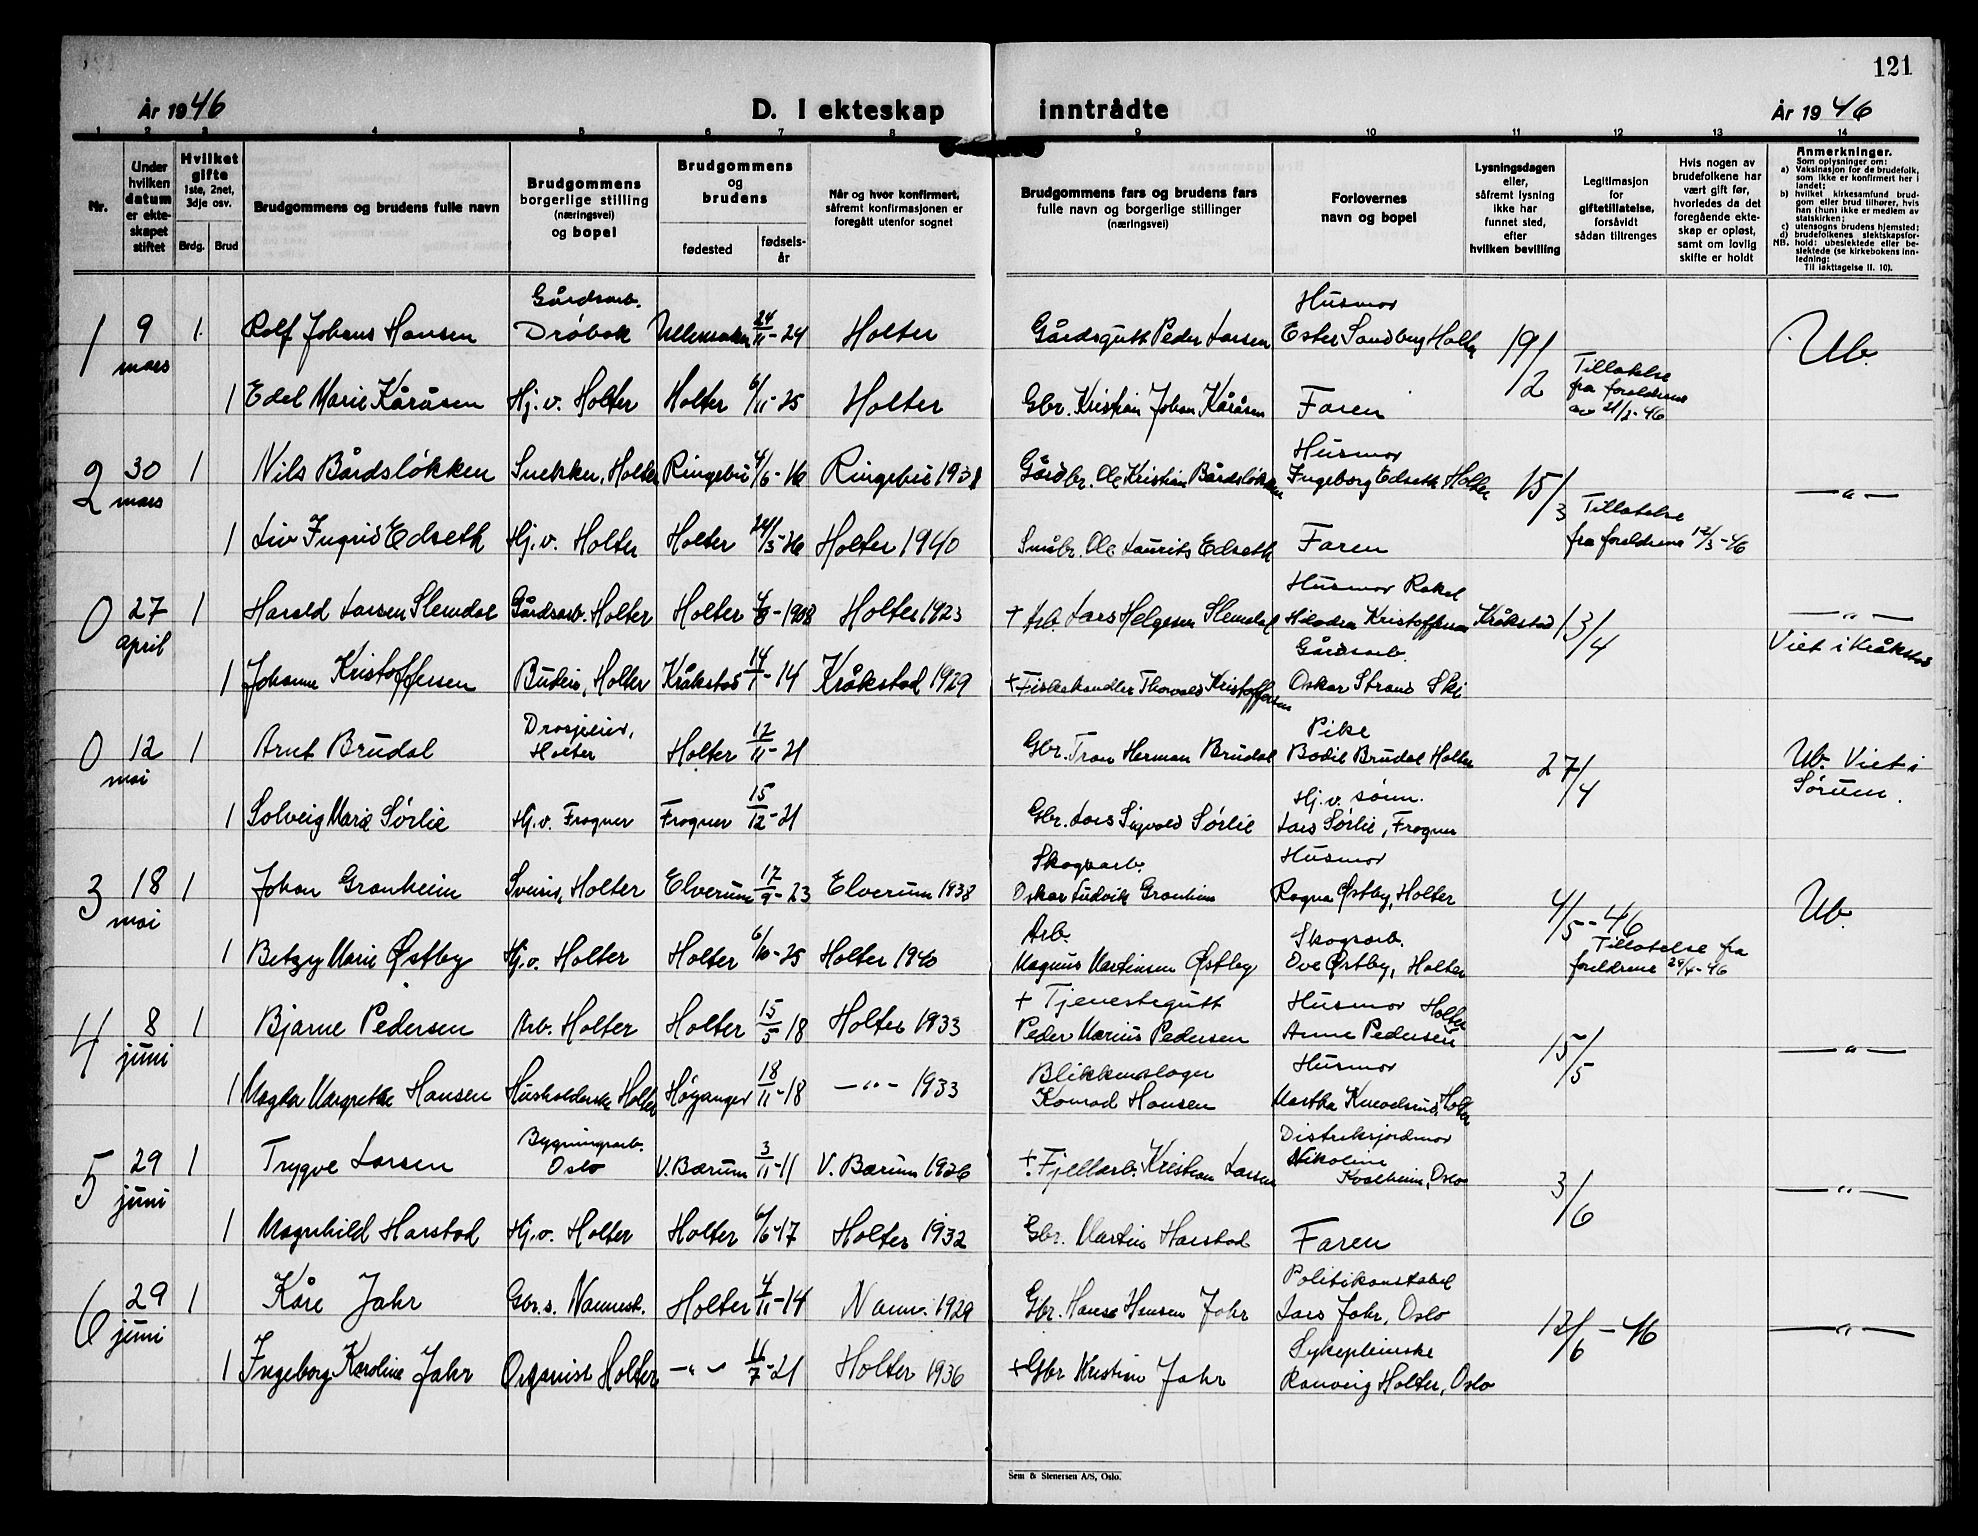 121
År 1946
D. I ekteskap inntrådte
År 1946
1 2 3 4 5 6 7 8 9 10 11 12 13 14
Nr.
Under hvilken datum er ekteskapet stiftet
Hvilket gifte 1ste, 2net, 3dje osv.
Brdg. Brud
Brudgommens og brudens fulle navn
Brudgommens borgerlige stilling (næringsvei) og bopel
Brudgommens og brudens
fødested
fødselsår
Når og hvor konfirmert, såfremt konfirmasjonen er foregått utenfor sognet
Brudgommens fars og brudens fars fulle navn og borgerlige stillinger (næringsvei)
Forlovernes navn og bopel
Lysningsdagen eller, såfremt lysning ikke har funnet sted, efter hvilken bevilling
Legitimasjon for giftetillatelse, forsåvidt sådan tiltrenges
Hvis nogen av brudefolkene har vært gift før, hvorledes da det foregående ekteskap er opløst, samt om lovlig skifte er holdt
Anmerkninger.
Som oplysninger om:
a) Vaksinasjon for de brudefolk, som ikke er konfirmert her i landet;
b) hvilket kirkesamfund brudgom eller brud tilhører, hvis han (hun) ikke er medlem av statskirken;
c) utensogns brudens hjemsted;
d) brudefolkenes slektskapsforhold: ubeslektede eller beslektede (se kirkebokens innledning:
NB. Til iakttagelse II. 10).
1 9 mars 1 Rolf Johans Hansen Gårdsarb. Drøbak Ullensaker 24/11-24 Holter Gårdsgutt Peder Larsen Husmor Ester Sandberg Holter 19/2 Ub.
1 Edel Marie Kåråsen Hj.v. Holter Holter 6/11-25 Holter Gbr. Kristian Johan Kåråsen Faren Tillatelse fra foreldrene av 21/2-46
2 30 mars 1 Nils Bårdsløkken Snekker, Holter Ringebu 4/6-16 Ringebu 1931 Gårdbr. Ole Kristian Bårdsløkken Husmor Ingeborg Edseth Holter 15/3 —"—
1 Liv Ingrid Edseth Hj.v. Holter Holter 24/3-26 Holter 1940 Småbr. Ole Laurits Edseth Faren Tillatelse fra foreldrene 12/3-46
0 27 april 1 Harald Larsen Slemdal Gårdsarb. Holter Holter 4/8-1908 Holter 1923 + Arb. Lars Helgesen Slemdal Husmor Rakel Hildora Kristoffersen Kråkstad 13/4 —"— Viet i Kråkstad
1 Johanne Kristoffersen Budeie, Holter Kråkstad 14/1-14 Kråkstad 1929 + Fiskehandler Thorvald Kristoffersen Gårdsarb. Oskar Strand Ski
0 12 mai 1 Arnt Brudal Drosjeeier, Holter Holter 12/11-21 Gbr. Tron Herman Brudal Pike Bodil Brudal Holter 27/4 Ub. Viet i Sørum.
1 Solveig Marie Sørlie Hj.v. Frogner Frogner 15/12-21 Gbr. Lars Sigvald Sørlie Hj.v. sønn. Lars Sørlie, Frogner
3 18 mai 1 Johan Granheim Sveiser, Holter Elverum 17/9-23 Elverum 1938 Skogsarb. Oskar Ludvik Granheim Husmor Ragna Østby, Holter 4/5-46 Ub.
1 Betzy Marie Østby Hj.v. Holter Holter 6/10-25 Holter 1940 Arb. Magnus Martinsen Østby Skogsarb. Ove Østby, Holter Tillatelse fra foreldrene 29/4-46
4 8 juni 1 Bjarne Pedersen Arb. Holter Holter 15/5 18 Holter 1933 + Tjenestegutt Peder Marius Pedersen Husmor Anne Pedersen Holter 15/5 —"—
1 Magda Margrethe Hansen Husholderske Holter Høyanger 18/11-18 —"— 1933 Blikkenslager Konrad Hansen Husmor Martha Knudsrud, Holter
5 29 juni 1 Trygve Larsen Bygningsarb. Oslo V. Bærum 3/11-11 V. Bærum 1926 + Fjellarb. Kristian Larsen Distriksjordmor Nikoline Kvalheim, Oslo 3/6 —"—
1 Magnhild Harstad Hj.v. Holter Holter 6/6-17 Holter 1932 Gbr. Martin Harstad Faren
6 29 juni 1 Kåre Jahr Gbr.s. Nannest. Holter 4/11-14 Nann. 1929 Gbr. Hans Hansen Jahr Politikonstabel Lars Jahr, Oslo 12/6-46 —"—
1 Ingeborg Karoline Jahr Organist Holter —"— 11/7-21 Holter 1936 + Gbr Kristian Jahr Sykepleierske Ranveig Holter, Oslo
Sem & Stenersen A/S, Oslo.